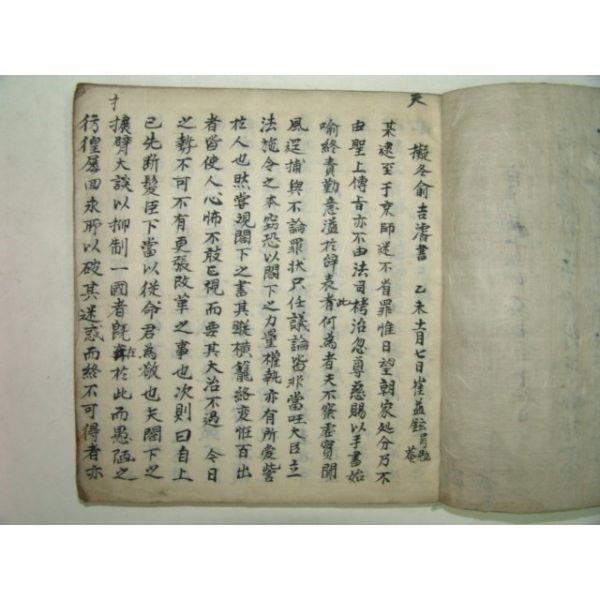 天
擬答俞吉濬書 乙未十一月七日崔益鉉勉菴
某逮至于京師迷不省罪惟日望朝家処分乃不
由聖上傳旨亦不由法司栲治忽尊惡賜以手書始
喻終責勤意溢於辞表者此何為者夫不察虛實聞
風逞捕與不論罪状只任議論皆非當 大臣立
法施令之本窃恐以閤下之力量權執亦有所
於人也然嘗覌閤下之書其蹤横籠絡変恠百出
者皆使人心怖不敢正視而要其大治不過 今日
之勢不可不有更張改革之事也次則曰自上
已先断髮臣下當以従命君為敬也夫閤下之
攘臂大談以抑制一國者旣在於此而愚陋之
彷徨屢回求所以破其迷惑而終不可得者亦